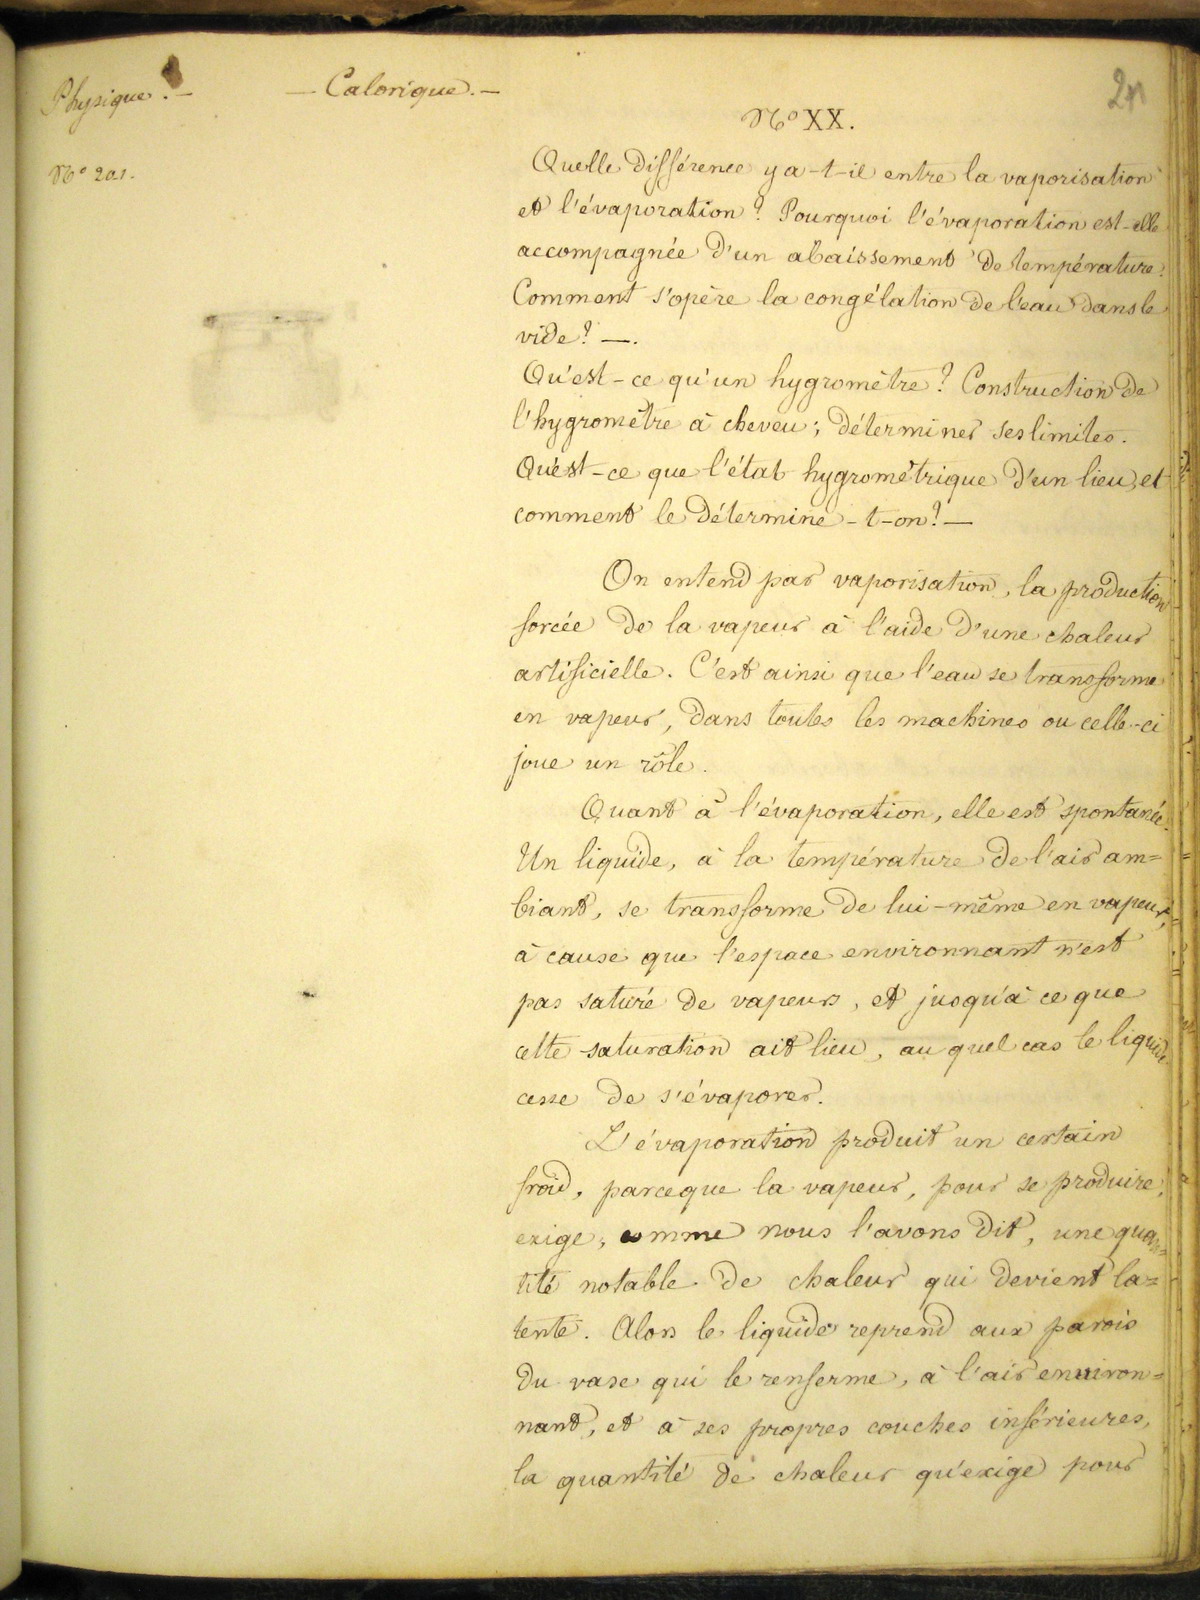 Physique. — — Calorique. —
N° XX.
N° 201.
Quelle différence y a-t-il entre la vaporisation
et l'évaporation? Pourquoi l'évaporation est-elle
accompagnée d'un abaissement de température.
Comment s'opère la congélation de l'eau dans le
vide? —.
Qu'est-ce qu'un hygromètre? Construction de
l'hygromètre à cheveu; déterminer ses limites.
Qu'est-ce que l'état hygrométrique d'un lieu, et
comment le détermine-t-on? —
On entend par vaporisation, la production
forcée de la vapeur à l'aide d'une chaleur
artificielle. C'est ainsi que l'eau se transforme
en vapeur, dans toutes les machines ou celle-ci
joue un rôle.
Quant à l'évaporation, elle est spontanée.
Un liquide, à la température de l'air am=
biant, se transforme de lui-même en vapeur,
à cause que l'espace environnant n'est
pas saturé de vapeurs, et jusqu'à ce que
cette saturation ait lieu, au quel cas le liquide
cesse de s'évaporer.
L'évaporation produit un certain
froid, parceque la vapeur, pour se produire,
exige, comme nous l'avons dit, une quan=
tité notable de chaleur qui devient la=
tente. Alors le liquide reprend aux parois
du vase qui le renferme, à l'air environ=
nant, et à ses propres couches inférieures,
la quantité de chaleur qu'exige pour